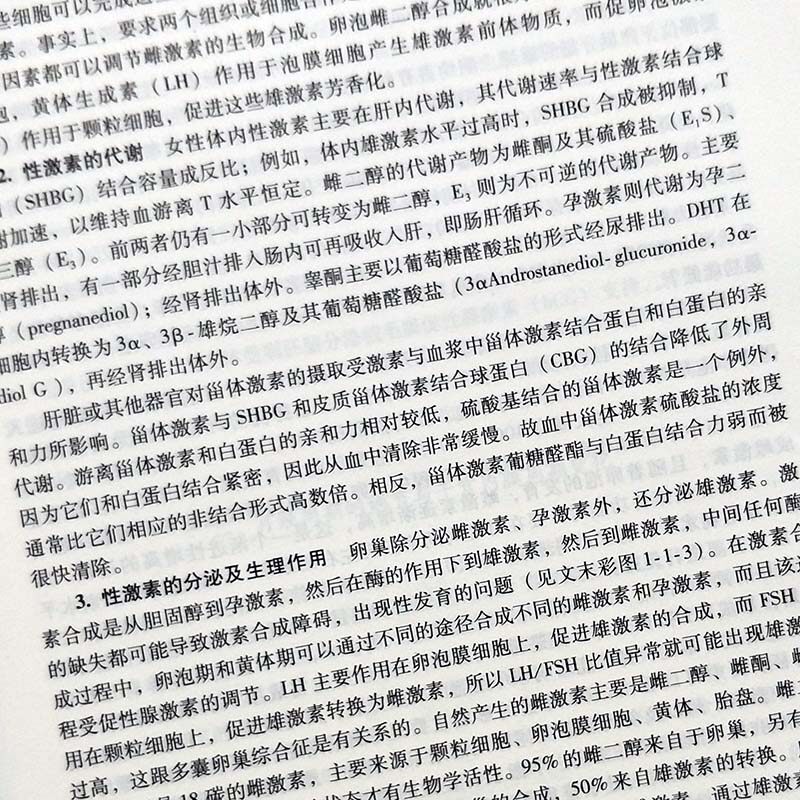 些细胞可以完成这
素。事实上，要求两个组织或细胞合作
因素都可以调节雌激素的生物合成。卵泡雌二醇合成就
胞，黄体生成素（LH）作用于泡膜细胞产生雄激素前体物质，而促卵泡激
）作用于颗粒细胞，促进这些雄激素芳香化。
2. 性激素的代谢 女性体内性激素主要在肝内代谢，其代谢速率与性激素结合球
（SHBG）结合容量成反比；例如，体内雄激素水平过高时，SHBG 合成被抑制，T
谢加速，以维持血游离 T 水平恒定。雌二醇的代谢产物为雌酮及其硫酸盐（E₁S）、
三醇（E₃）。前两者仍有一小部分可转变为雌二醇，E₃ 则为不可逆的代谢产物。主要
肾排出，有一部分经胆汁排入肠内可再吸收入肝，即肠肝循环。孕激素则代谢为孕二
醇（pregnanediol）；经肾排出体外。睾酮主要以葡萄糖醛酸盐的形式经尿排出。DHT 在
细胞内转换为 3α、3β- 雄烷二醇及其葡萄糖醛酸盐（3αAndrostanediol-glucuronide，3α-
diol G），再经肾排出体外。
肝脏或其他器官对甾体激素的摄取受激素与血浆中甾体激素结合蛋白和白蛋白的亲
和力所影响。甾体激素与 SHBG 和皮质甾体激素结合球蛋白（CBG）的结合降低了外周
代谢。游离甾体激素和白蛋白的亲和力相对较低，硫酸基结合的甾体激素是一个例外，
因为它们和白蛋白结合紧密，因此从血中清除非常缓慢。故血中甾体激素硫酸盐的浓度
通常比它们相应的非结合形式高数倍。相反，甾体激素葡糖醛酯与白蛋白结合力弱而被
很快清除。
3. 性激素的分泌及生理作用 卵巢除分泌雌激素、孕激素外，还分泌雄激素。激
素合成是从胆固醇到孕激素，然后在酶的作用下到雄激素，然后到雌激素，中间任何酶
的缺失都可能导致激素合成障碍，出现性发育的问题（见文末彩图1-1-3）。在激素合
成过程中，卵泡期和黄体期可以通过不同的途径合成不同的雌激素和孕激素，而且该过
程受促性腺激素的调节。LH 主要作用在卵泡膜细胞上，促进雄激素的合成，而 FSH
用在颗粒细胞上，促进雄激素转换为雌激素，所以 LH/FSH 比值异常就可能出现雄激
过高，这跟多囊卵巢综合征是有关系的。自然产生的雌激素主要是雌二醇、雌酮、雌
18 碳的雌激素，主要来源于颗粒细胞、卵泡膜细胞、黄体、胎盘。雌
状态才有生物学活性。95% 的雌二醇来自于卵巢，另有
的合成，50% 来自雄激素的转换。
激素，通过雄激